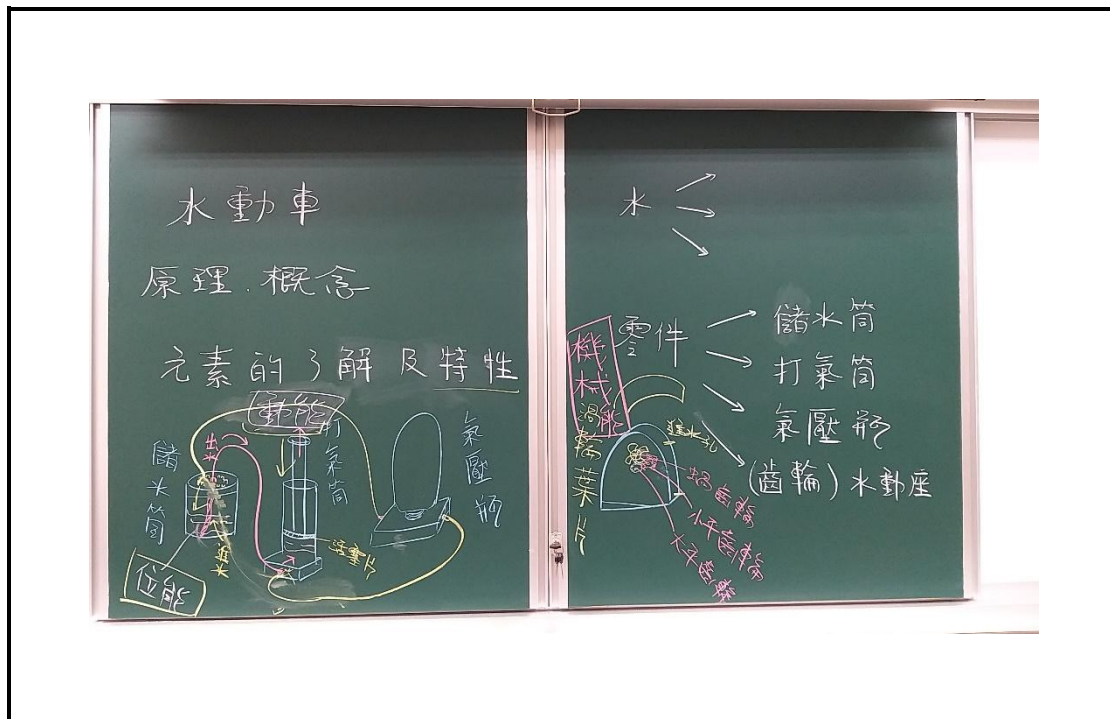 水動車
原理.概念
元素的了解及特性
動能
儲水筒
出水
進水
位能
打氣筒
活塞片
氣壓瓶
水
零件
儲水筒
打氣筒
氣壓瓶
(齒輪)水動座
機械能
渦輪葉片
進水孔
蝸齒輪
小平齒輪
大平齒輪